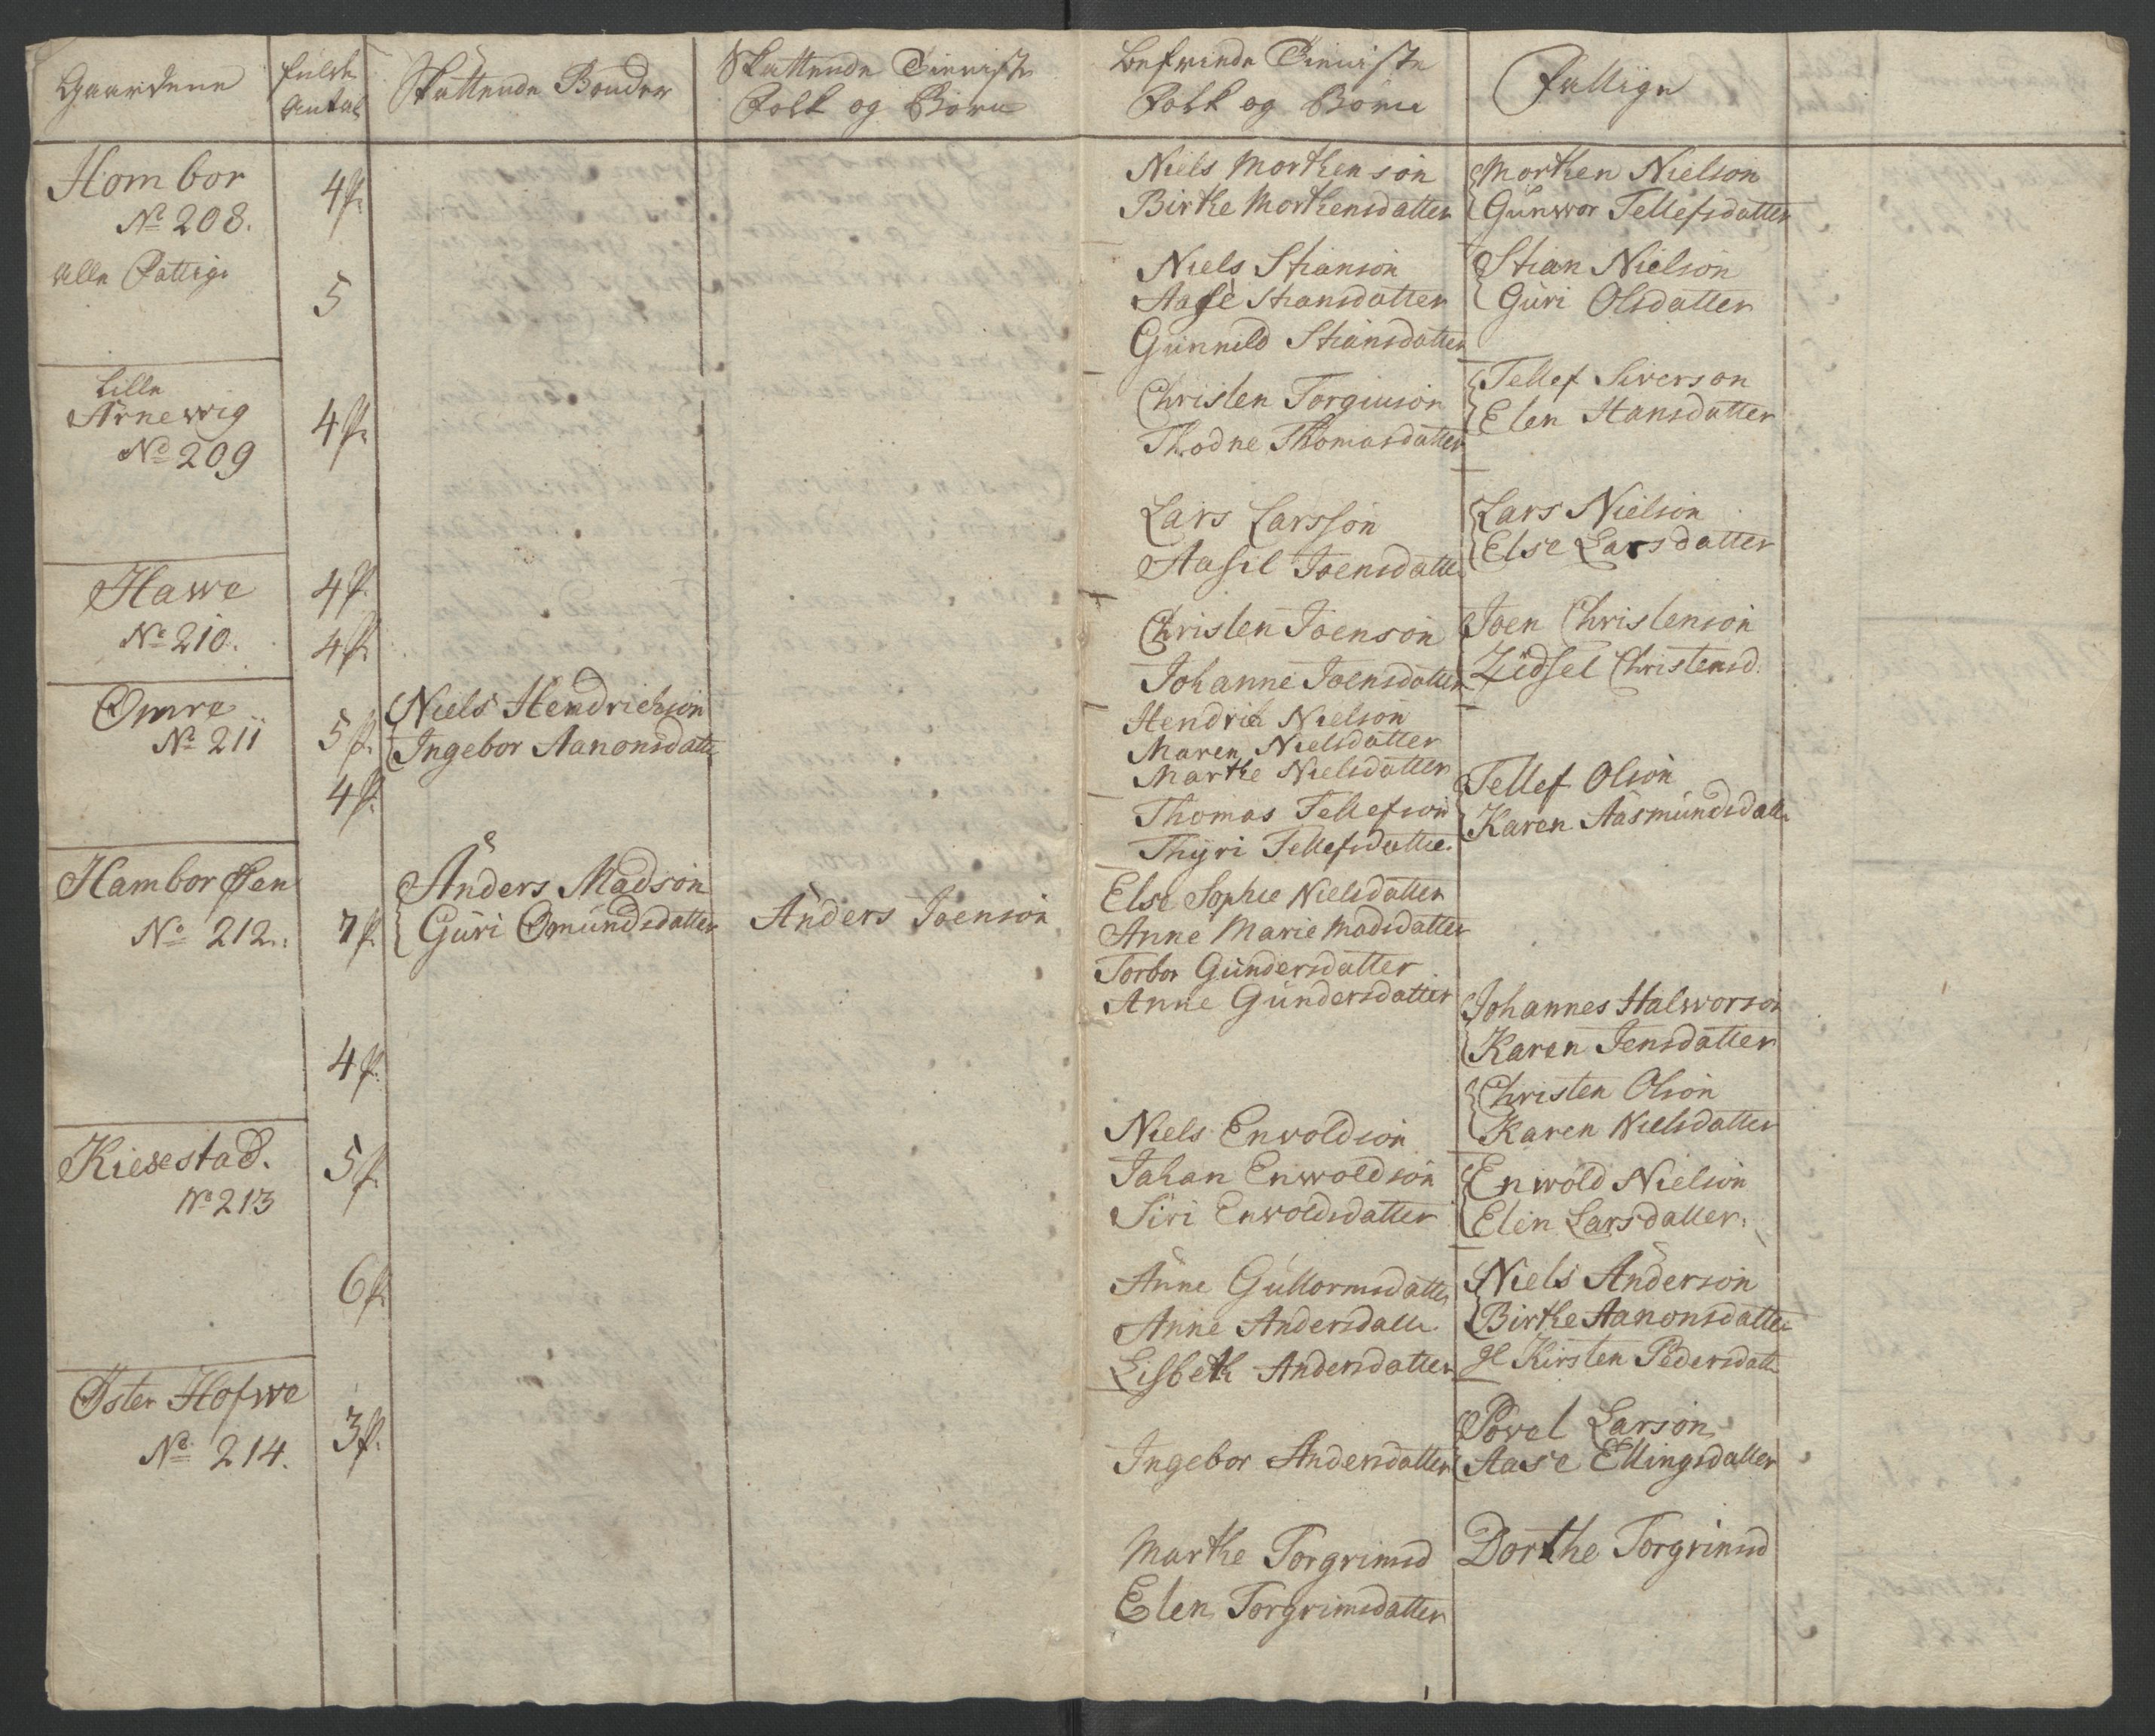 Gaardene
fulde Antal
Skattende Bønder
Skattende Tienniste Folk og Børn
befriede Tienniste Folk og Børn
Fattige
Hombor
No 208.
alle Fattige
4 p.
Niels Morthenson
Birthe Morthensdatter
Morthen Nielson
Gunwor Tellefsdatter
5
Niels Stianson
Aase Stiansdatter
Gunnild Stiansdatter
Stian Nielson
Guri Olsdatter
Lille
Arnewig
No 209
4 p.
Christen Torgiuson
Thodne Thomasdatter
Tellef Siverson
Elen Hansdatter
Lars Larsson
Aasil Joensdatter
Lars Nielson
Else Larsdatter
Hawe
No 210.
4 p.
4 p.
Christen Joenson
Johanne Joensdatter
Joen Christenson
Zidsel Christensd.
Omre
No 211
5 p.
Niels Hendrichson
Ingebor Aanonsdatter
Hendrik Nielson
Maren Nielsdatter
Marthe Nielsdatter
4 p.
Thomas Tellefson
Thyri Tellefsdatter
Tellef Olson
Karen Aasmundsdatter
Hambor Øen
No 212.
7 p.
Anders Madson
Guri Omundsdatter
Anders Joenson
Else Sophie Nielsdatter
Anne Marie Madsdatter
Torbor Gundersdatter
Anne Gundersdatter
4 p.
Johannes Halworson
Karen Jensdatter
Christen Olson
Karen Nielsdatter
Kiesestad.
No 213
5 p.
Niels Enwoldson
Jahan Enwoldson
Siri Enwoldsdatter
Enwold Nielson
Elen Larsdatter.
6 p.
Anne Gullormsdatter
Anne Andersdatter
Lisbeth Andersdatter
Niels Anderson
Birthe Aanonsdatter
gl Kirsten Pedersdatter
Øster Hofwe
No 214.
3 p.
Ingebor Andersdatter
Povel Larson
Aase Ellingsdatter
Marthe Torgrimsd
Elen Torgrimsdatter
Dorthe Torgrimsd